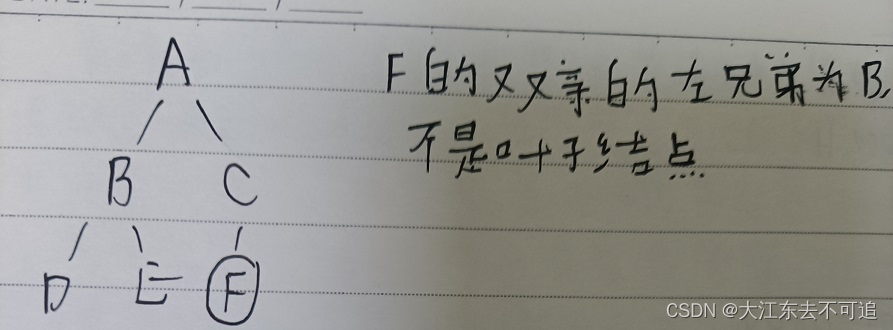 A
F的双亲的左兄弟为B,
不是叶子结点
B C
D E F
CSDN @大江东去不可追